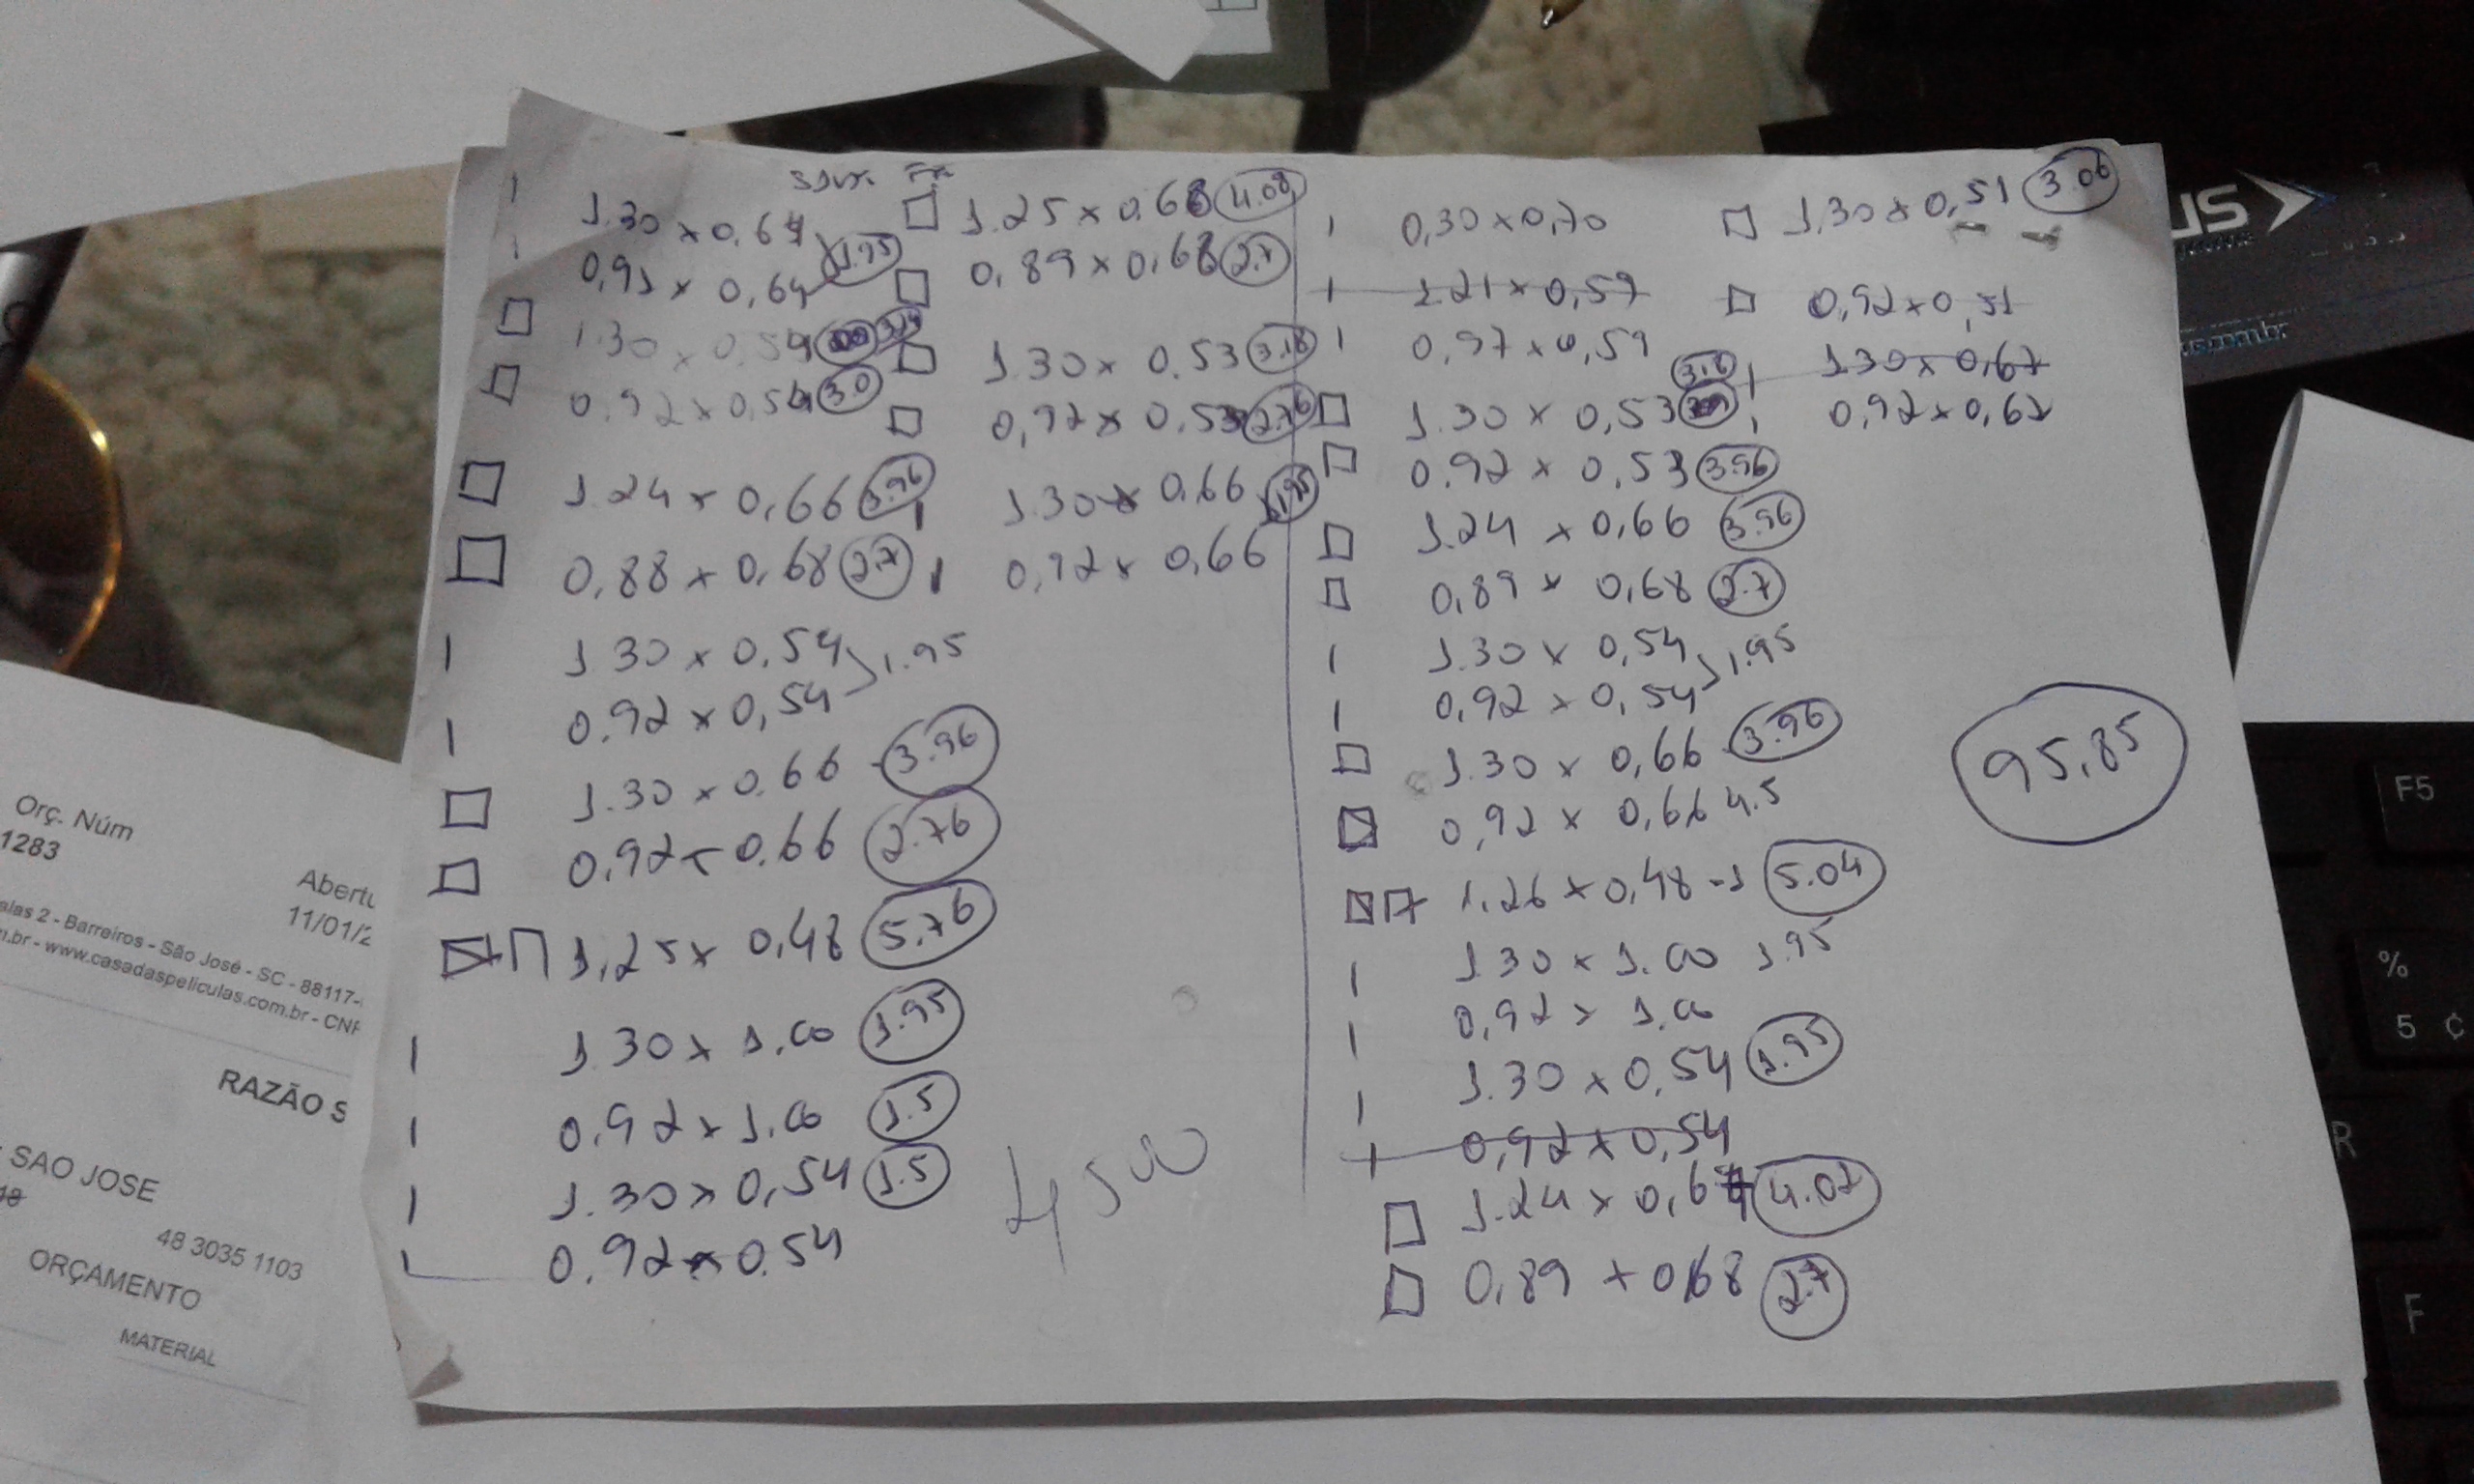 1.30 x 0,64
0,91 x 0,64 1.95
1.30 x 0,54 3.24
0.92 x 0,54 3.0
1.24 x 0,66 3.96
0,88 x 0,68 2.7
1.30 x 0,54
0.92 x 0,54 1.95
1.30 x 0.66 3.96
0.92 x 0.66 2.76
1,25 x 0,48 5.76
1.30 x 1.00 1.95
0.92 x 1.00 1.5
1.30 x 0,54 1.5
0.92 x 0.54
1.25 x 0.68 4.08
0,89 x 0,68 2.7
1.30 x 0.53 3.18
0,92 x 0.53 2.76
1.30 x 0,66 1.95
0,92 x 0,66
4500
0,30 x 0,70
1.21 x 0,59
0,97 x 0,59
1.30 x 0,53 3.18
0.92 x 0,53 3.96
1.24 x 0,66 3.96
0,89 x 0,68 2.7
1.30 x 0,54
0,92 x 0,54 1.95
1.30 x 0,66 3.96
0,92 x 0,66 4.5
1,26 x 0,48 -1 5.04
1.30 x 1.00 1.95
0,92 x 1.00
1.30 x 0,54 1.95
0,92 x 0,54
1.24 x 0,67 4.07
0,89 x 0,68 2.7
1,30 x 0,51 3.06
0,92 x 0,51
1.30 x 0,67
0,92 x 0,67
95,85
Orç. Núm
1283
11/01/2
alas 2 - Barreiros - São José - SC - 88117-
n.br - www.casadaspeliculas.com.br - CNP
RAZÃO S
SAO JOSE
48 3035 1103
ORÇAMENTO
MATERIAL
us
s.com.br
F5
%
5
¢
R
F